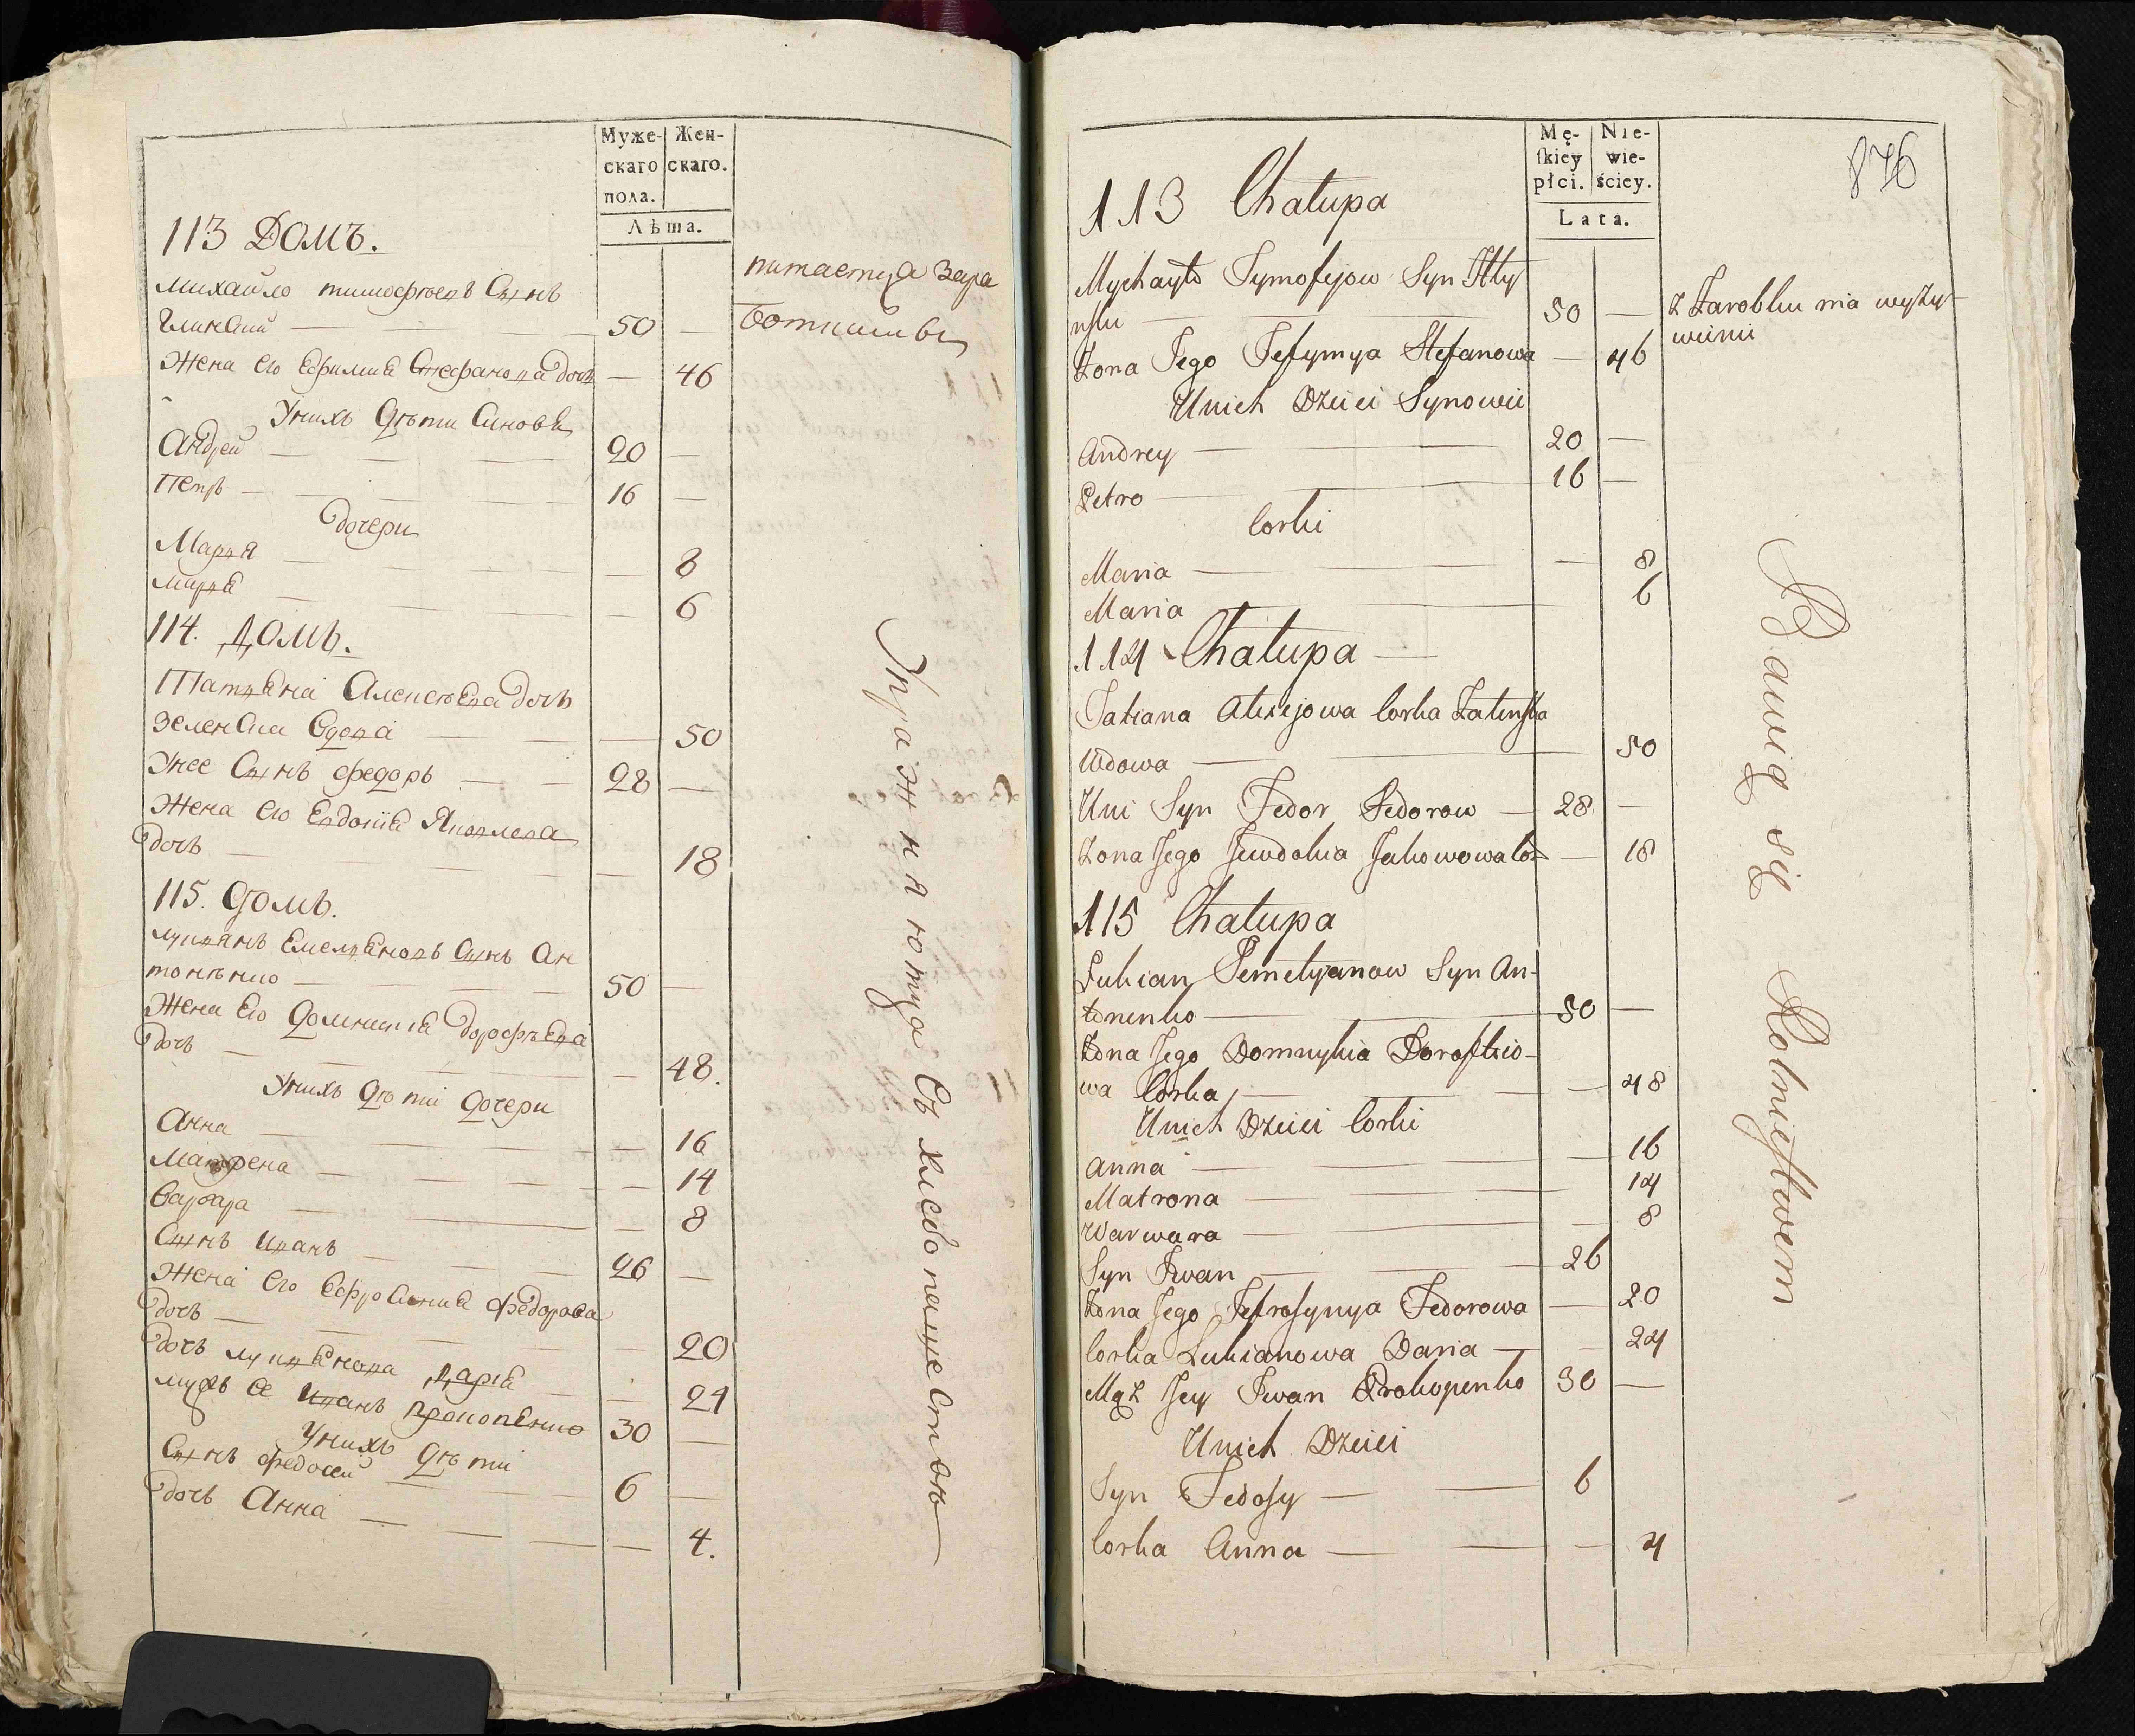 Муже-
скаго
пола.
Жен-
скаго.
Лѣта.
113 Домъ.
Михайло тимофѣевъ Сынъ
Глинский — 50 —
питаетця Зара
ботками
Жена его Ефимия Стефанова дочь — 46
Унихъ дѣти Синовя
Андрей — 20 —
Петръ — 16 —
дочери
Мария — 8
Мария — 6
114. Домъ.
Татияна Алексеева дочь
вдова — 50
Унее Сынъ федоръ — 28 —
Жена его Евдокия Яковлева
дочь — 18
115. домъ.
лукиянъ Емелияновъ Сынъ Ан
тоненко — 50 —
Жена Его домникия дорофѣева
дочь — 48.
Унихъ дѣти дочери
Анна — 16
Матрена — 14
Варвара — 8
Сынъ иванъ — 26 —
Жена его Ефросиния федорова
дочь — 20
дочь лукиянова дария — 24
мужъ ее иванъ прокопенко 30 —
Унихъ дѣти
Сынъ федосей — 6 —
дочь Анна — 4.
Упражняютца Съ хлебопашеством
876
Mę-
ſkiey
płci.
Nie-
wie-
ściey.
Lata.
113 Chałupa
Mychayło Tymofejow Syn Hły
nski — 50 — Z Zarobku ma wyży-
wieni
Żona Jego Jefymya Stefanowa — 46
Unich Dzieci Synowie
Andrey — 20 —
Petro — 16 —
Corki
Maria — 8
Maria — 6
114 Chałupa —
Tatiana Alexejowa Corka
Wdowa — 50
Uni Syn Fedor Fedorow — 28 —
Żona Jego Jewdokia — 18
115 Chałupa
Łukian Jemelyanow Syn An-
tonenko — 50 —
Żona Jego Domnykia Doroftio-
wa Corka — 48
Unich Dzieci Corki
Anna — 16
Matrona — 14
Warwara — 8
Syn Iwan — 26
Żona Jego Jefrosynya Fedorowa — 20
Corka Łukianowa Daria — 24
Mąż Jey Iwan Prokopenko 30 —
Unich Dzieci
Syn Fedosy — 6
Corka Anna — 4
Bawią się Rolnictwem